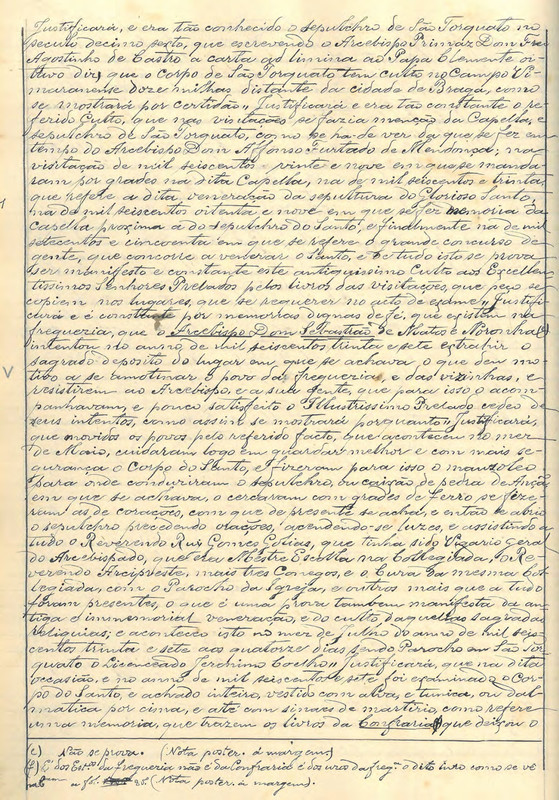 Justificará, e era tão conhecido o sepulchro de São Torquato no
seculo decimo sexto, que escrevendo o Arcebispo Primáz Dom Frei
Agostinho de Castro a carta ad limina ao Papa Clemente oi-
tavo diz, que o Corpo de São Torquato tem culto no Campo Vi-
maranense doze milhas distante da cidade de Braga, como
se mostrará por certidão,, Justificará e era tão constante o re-
ferido Culto, que nas visitações se fazia menção da Capella, e
sepulchro de São Torquato, como se ha de ver da que se fez em
tempo do Arcebispo Dom Affonso Furtado de Mendonça; na
visitação de mil seiscentos vinte e nove em que se manda-
vam por grades na dita Capella, na de mil seiscentos e trinta,
que refere a dita veneração da sepultura do Glorioso Santo,
na de mil seiscentos oitenta e nove em que se fez memoria da
Capella proxima á do sepulchro do Santo, e finalmente na de mil
setecentos e cincoenta em que se refere o grande concurso de
gente, que concorre a venerar o Santo, e de tudo isto se prova
ser manifesto e constante este antiquissimo Culto aos Excellen-
tissimos Senhores Prelados pelos livros das visitações, que peço se
copiem nos lugares, que se requerer no acto de exame,, Justifi-
cará e é constante por memorias dignas de fé, que existem na
freguezia, que o Arcebispo Dom Sebastião de Matos e Noronha (e)
intentou no anno de mil seiscentos trinta e sete extrahir o
sagrado deposito do lugar em que se achava, o que deu mo-
tivo a se amotinar o povo da freguezia, e das vizinhas, e
resistirem ao Arcebispo, e a sua gente, que para isso o acom-
panhavam, e pouco satisfeito o Illustrissimo Prelado cedeo de
seus intentos, como assim se mostrará porquanto,, Justificará,
que movidos os povos pelo referido facto, que aconteceu no mez
de Maio, cuidaram logo em guardar melhor e com mais se-
gurança o Corpo do Santo, e fizeram para isso o mausoleo
para onde conduziram o sepulchro, ou caixão de pedra de Ançã
em que se achava, o cercaram com grades de ferro se fize-
ram as de corações, com que de presente se acha, e então se abrio
o sepulchro precedendo orações, acendendo-se luzes, e assistindo a
tudo o Reverendo Ruy Gomes Golias, que tinha sido Vigario Geral
do Arcebispado, que era Mestre Escolla na Collegiada, o Re-
verendo Arcipreste, mais tres Conegos, e o Cura da mesma Col-
legiada, com o Parocho da Igreja, e outros mais que a tudo
foram presentes, o que é uma prova tambem manifesta da an-
tiga e immemorial veneração, e do culto daquellas sagradas
reliquias; e aconteceo isto no mez de Julho do anno de mil seis-
centos trinta e sete aos quatorze dias sendo Parocho em São Tor-
quato o Licenceado Jerónimo Coelho,, Justificará, que na dita
occasião, e no anno de mil seiscentos e sete foi examinado o Cor-
po do Santo, e achado inteiro, vestido com alva, e tunica, ou dal-
matica por cima, e até com sinaes de martirio, como refere
uma memoria, que trazem os livros da Confraria (f) que deixou o
(e) Não se prova. (Nota poster. á margem)
(f) dos Est.os da freguezia não é da Confraria é dos usos da freg.a o dito livro como se vê
a fl. 28. (Nota poster. á margem).